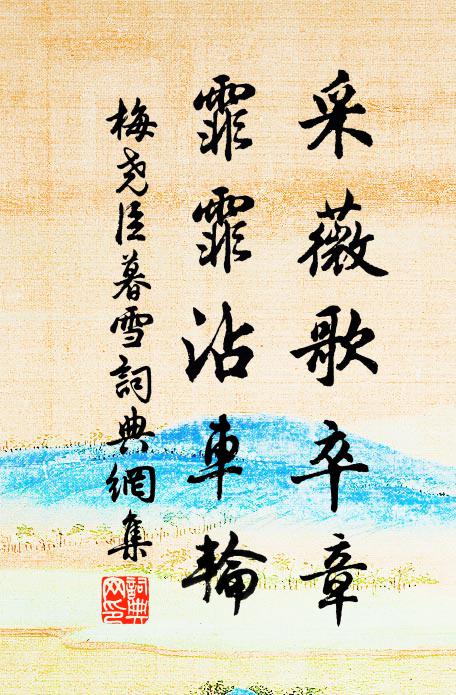 采薇歌卒章
霏霏沾車輪
梅尧臣暮雪詞典網集
詞典网印